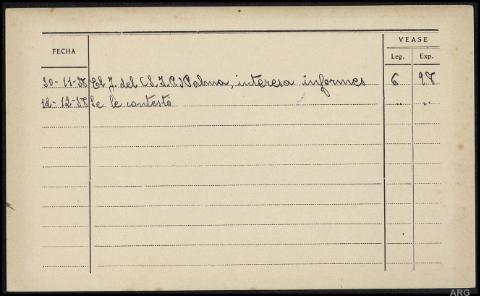 VEASE
FECHA Leg. Exp.
30-11-38 El J. del (S.I.P.) Palma, interesa informes 6 98
12-12-38 Se le contestó " "
ARG